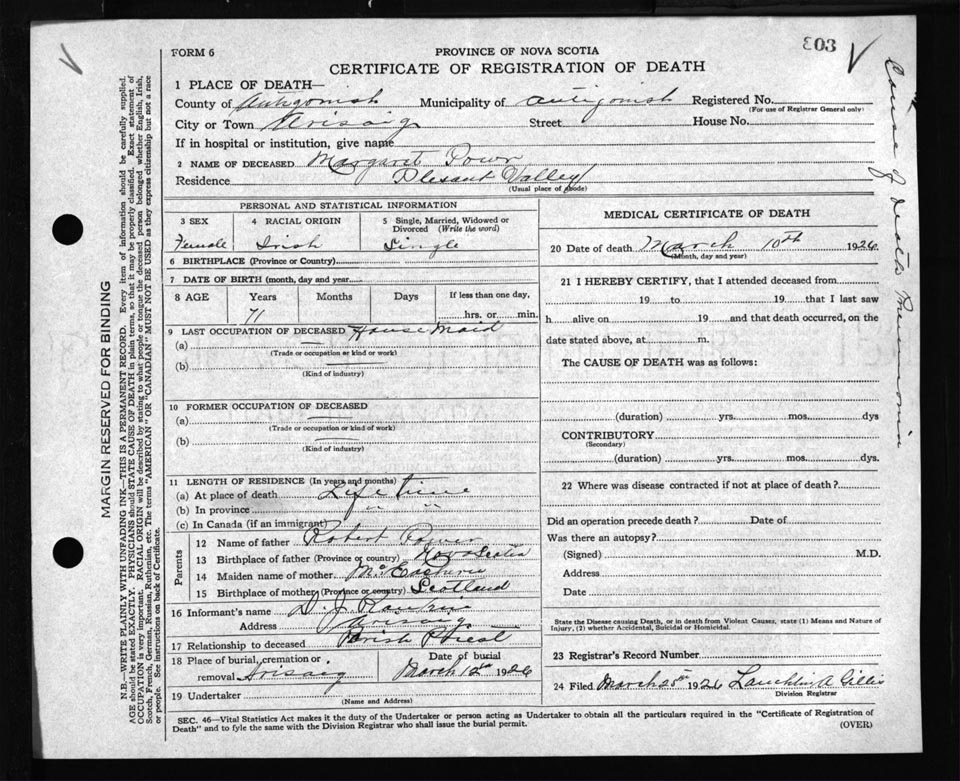 FORM 6
PROVINCE OF NOVA SCOTIA
803
CERTIFICATE OF REGISTRATION OF DEATH
1 PLACE OF DEATH—
County of Antigonish Municipality of Antigonish Registered No.
(For use of Registrar General only)
City or Town Arisaig Street House No.
If in hospital or institution, give name
2 NAME OF DECEASED Margaret Power
Residence Plesant Valley
(Usual place of abode)
PERSONAL AND STATISTICAL INFORMATION
3 SEX 4 RACIAL ORIGIN 5 Single, Married, Widowed or
Divorced (Write the word)
Female Irish Single
6 BIRTHPLACE (Province or Country)
7 DATE OF BIRTH (month, day and year
8 AGE Years Months Days If less than one day,
71 hrs. or min.
9 LAST OCCUPATION OF DECEASED House Maid
(a)
(Trade or occupation or kind or work)
(b)
(Kind of industry)
10 FORMER OCCUPATION OF DECEASED
(a)
(Trade or occupation or kind or work.)
(b)
(Kind of industry)
11 LENGTH OF RESIDENCE (In years and months)
(a) At place of death Life time
(b) In province " "
(c) In Canada (if an immigrant)
Parents
12 Name of father Robert Power
13 Birthplace of father (Province or country) Nova Scotia
14 Maiden name of mother
15 Birthplace of mother (Province or country) Scotland
16 Informant's name D. J.
Address Arisaig
17 Relationship to deceased Parish Priest
18 Place of burial, cremation or Date of burial
removal Arisaig March 12th 1926
19 Undertaker
(Name and Address)
MEDICAL CERTIFICATE OF DEATH
20 Date of death March 10th 1926
(Month, day and year)
21 I HEREBY CERTIFY, that I attended deceased from
19 to 19 that I last saw
h alive on 19 and that death occurred, on the
date stated above, at m.
The CAUSE OF DEATH was as follows:
(duration) yrs. mos. dys
CONTRIBUTORY
(Secondary)
(duration) yrs. mos. dys.
22 Where was disease contracted if not at place of death?
Did an operation precede death? Date of
Was there an autopsy?
(Signed) M.D.
Address
Date
State the Disease causing Death, or in death from Violent Causes, state (1) Means and Nature of
Injury, (2) whether Accidental, Suicidal or Homicidal.
23 Registrar's Record Number
24 Filed March 25th 1926 Lauchlin A Gillis
Division Registrar
SEC. 46—Vital Statistics Act makes it the duty of the Undertaker or person acting as Undertaker to obtain all the particulars required in the "Certificate of Registration of
Death" and to fyle the same with the Division Registrar who shall issue the burial permit.
(OVER)
Cause of death Pneumonia
MARGIN RESERVED FOR BINDING
N.B.—WRITE PLAINLY WITH UNFADING INK—THIS IS A PERMANENT RECORD. Every item of information should be carefully supplied.
AGE should be stated EXACTLY. PHYSICIANS should STATE CAUSE OF DEATH in plain terms, so that it may be properly classified. Exact statement of
OCCUPATION is very important. RACIAL ORIGIN will be described by stating to what people or tongue the deceased person belonged whether English, Irish,
Scotch, French, German, Russian, Ruthenian, etc. The terms "AMERICAN" OR "CANADIAN" MUST NOT BE USED as they express citizenship but not a race
or people. See instructions on back of Certificate.